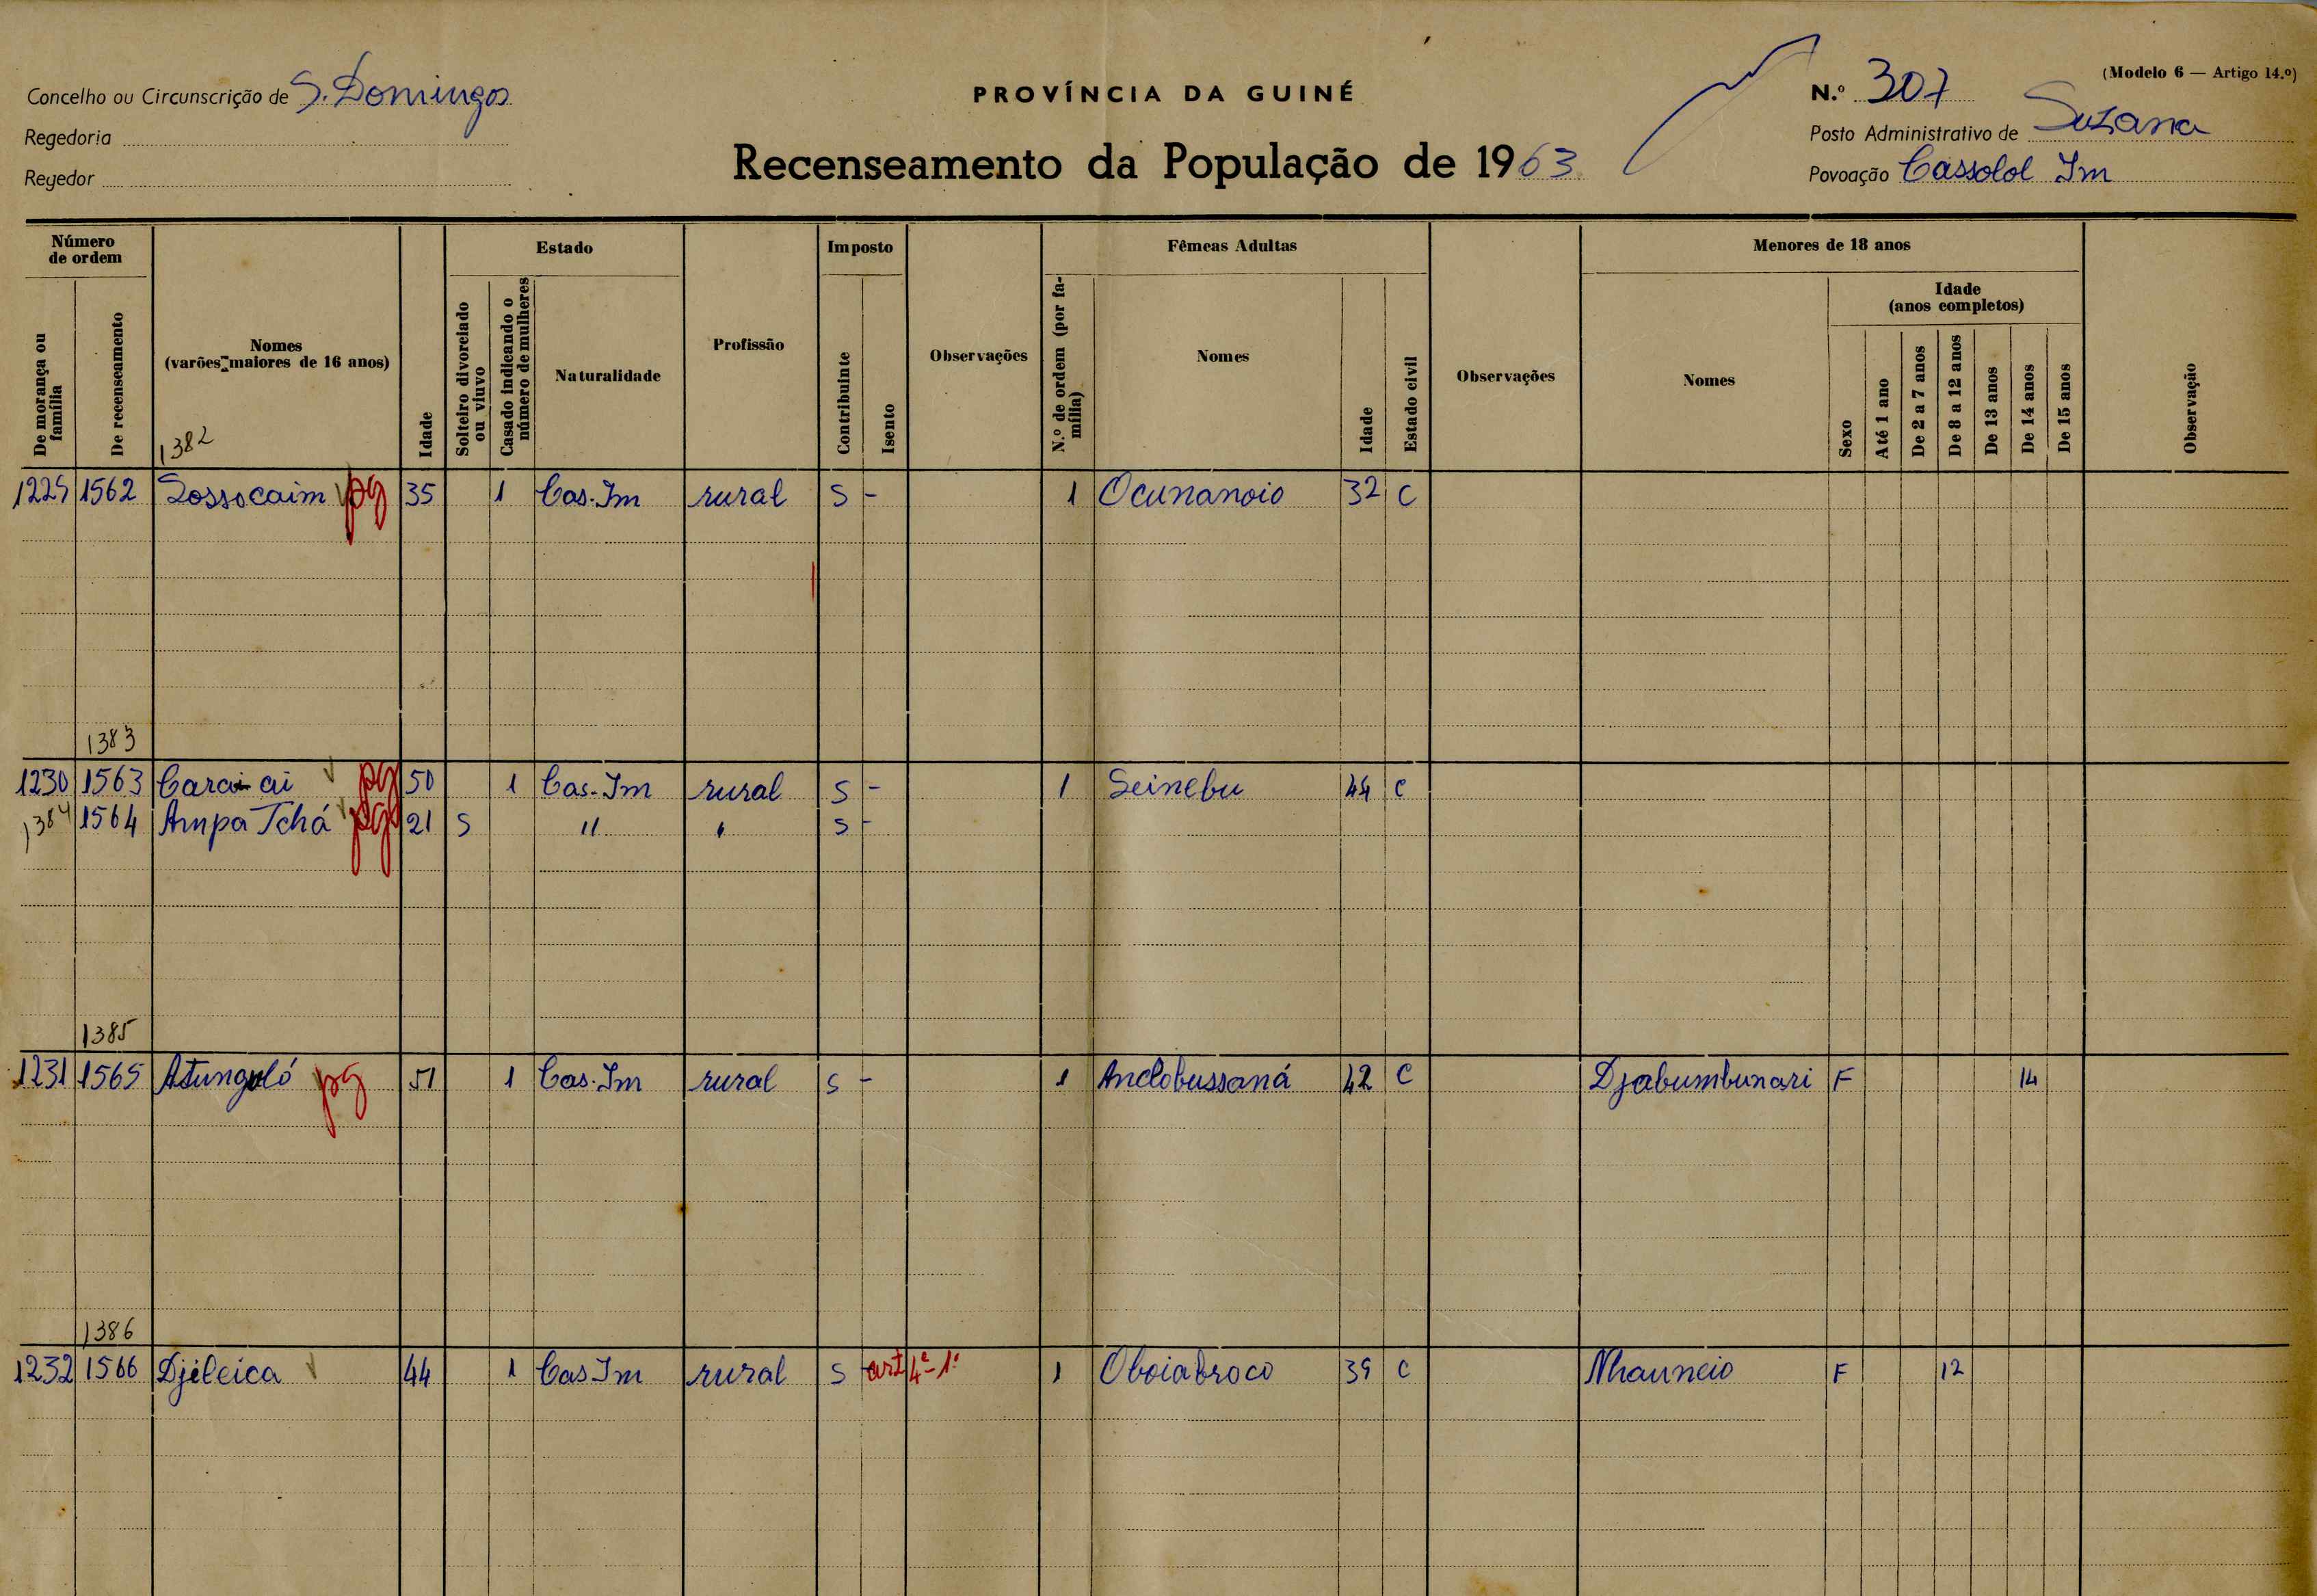 (Modelo 6 — Artigo 14.º)
Concelho ou Circunscrição de S. Domingos
PROVÍNCIA DA GUINÉ
N.º 307
Regedoria
Posto Administrativo de Suzana
Recenseamento da População de 1963
Regedor
Povoação Cassolol Im
Número de ordem
De morança ou família
De recenseamento
Nomes
(varões maiores de 16 anos)
1382
Idade
Estado
Solteiro divorciado ou viuvo
Casado indicando o número de mulheres
Naturalidade
Profissão
Imposto
Contribuinte
Isento
Observações
Fêmeas Adultas
N.º de ordem (por família)
Nomes
Idade
Estado civil
Observações
Menores de 18 anos
Nomes
Sexo
Idade
(anos completos)
Até 1 ano
De 2 a 7 anos
De 8 a 12 anos
De 13 anos
De 14 anos
De 15 anos
Observação
1229 1562 Sossocaim pg 35 1 Cas. Im rural S - 1 Ocunanoio 32 C
1383
1230 1563 Carai ai pg 50 1 Cas. Im rural S - 1 Seinebu 44 C
1384 1564 Ampa Tchá pg 21 S " " S -
1385
1231 1565 Atungoló pg 51 1 Cas. Im rural S - 1 Andobussaná 42 C Djabumbunari F 14
1386
1232 1566 Djileica 44 1 Cas Im rural S art 4º-1º 1 Oboiabroco 39 C Nhauneio F 12